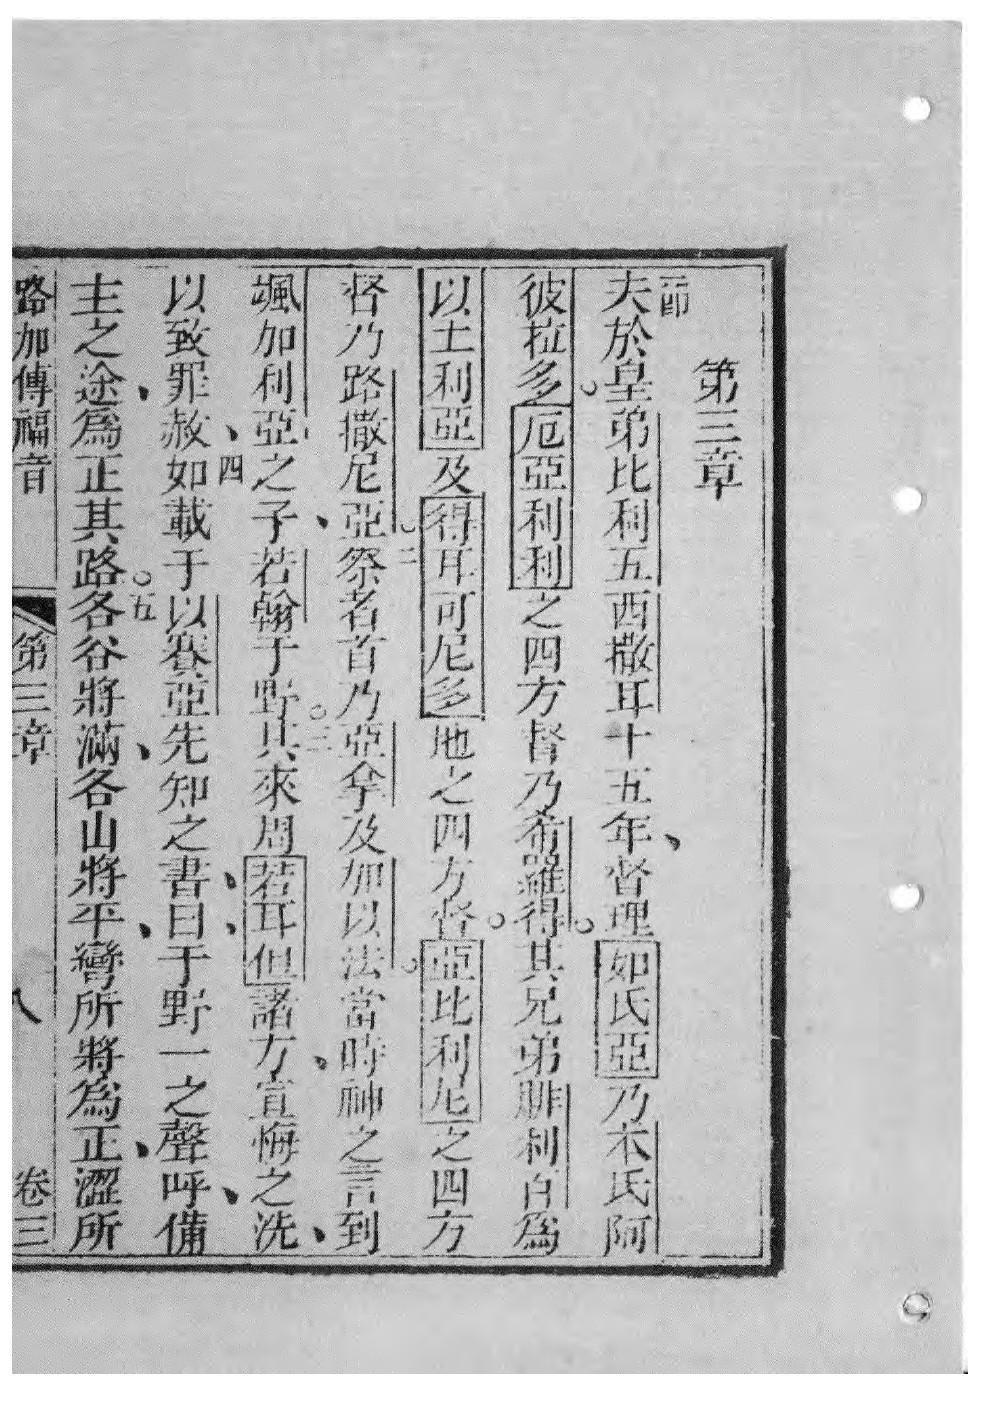 第三章
一節夫於皇弟比利五西撒耳十五年、督理如氏亞乃本氏阿
彼拉多。厄亞利利之四方督乃希羅得。其兄弟腓利百為
以土利亞及得耳可尼多地之四方督。亞比利尼之四方
督乃路撒尼亞。二祭者首乃亞拿及加以法。當時神之言到
颯加利亞之子、若翰于野。三其來周若耳但諸方、宣悔之洗、
以致罪赦、四如載于以賽亞先知之書、曰、于野一之聲呼、備
主之途、為正其路。五各谷將滿、各山將平、彎所將為正、澀所
路加傳福音 第三章 八 卷三